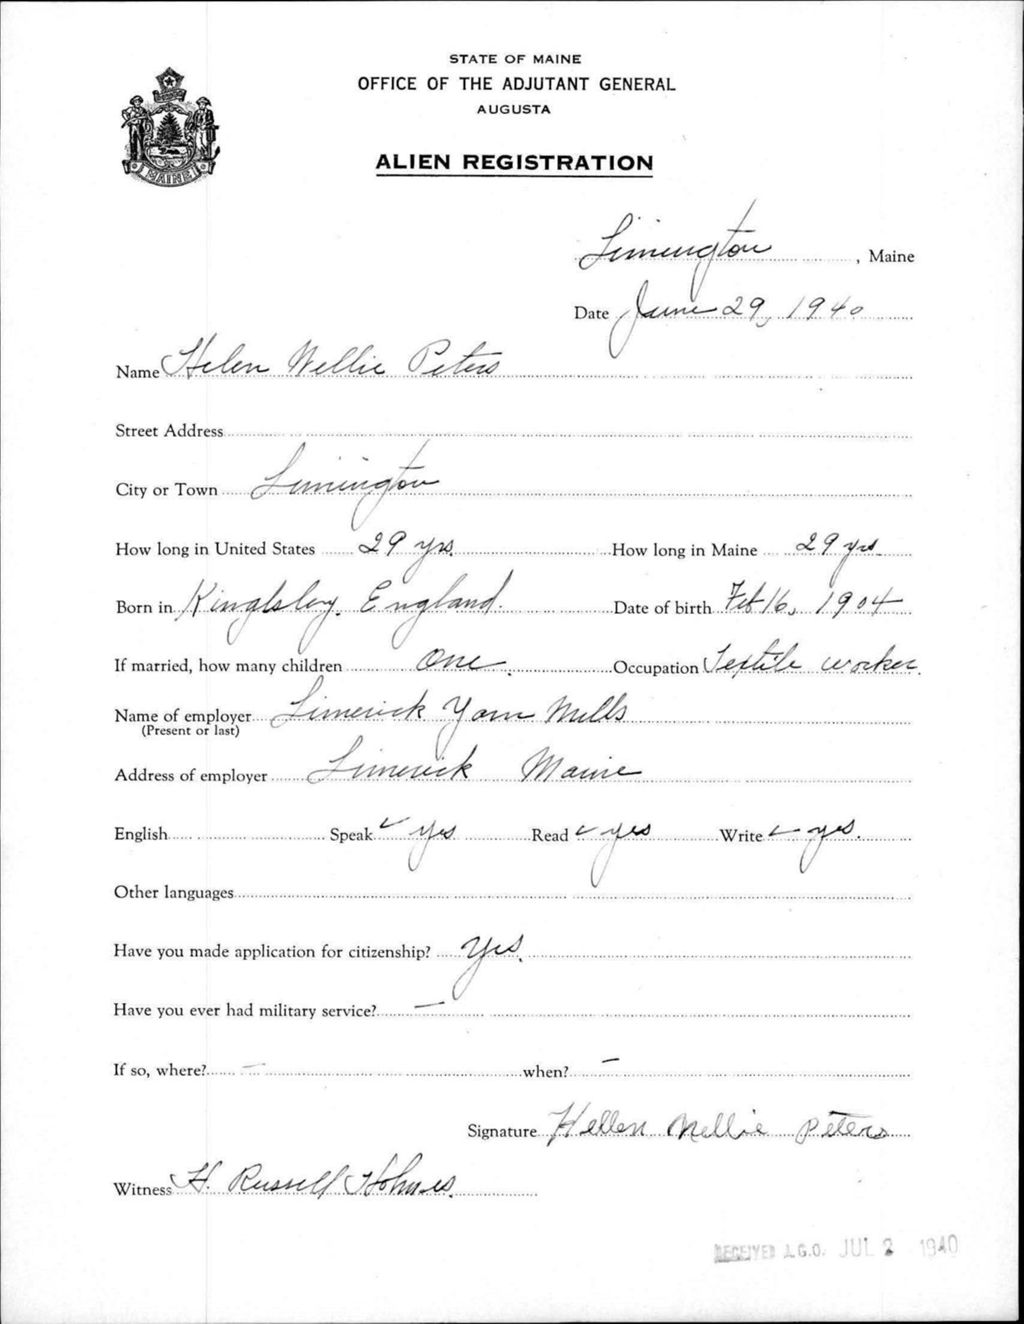 STATE OF MAINE
OFFICE OF THE ADJUTANT GENERAL
AUGUSTA
ALIEN REGISTRATION
MAINE
Limington, Maine
Date June 29, 1940
Name Helen Nellie Peters
Street Address
City or Town Limington
How long in United States 29 yrs. How long in Maine 29 yrs
Born in Kinglsley, England. Date of birth Feb 16, 1904
If married, how many children One. Occupation Textile worker.
Name of employer Limerick Yarn Mills
(Present or last)
Address of employer Limerick Maine
English Speak ✓ yes Read ✓ yes Write ✓ yes.
Other languages
Have you made application for citizenship? Yes.
Have you ever had military service? —
If so, where? — when? —
Signature Hellen Nellie Peters
Witness H. Russell Holmes.
RECEIVED A.G.O. JUL 2 1940